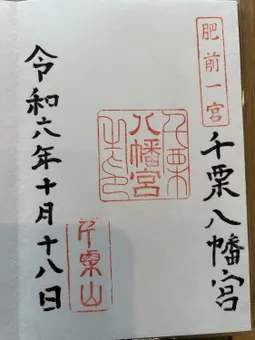 肥前一宮
千栗八幡宮
八幡宮
千栗山
令和六年十月十八日